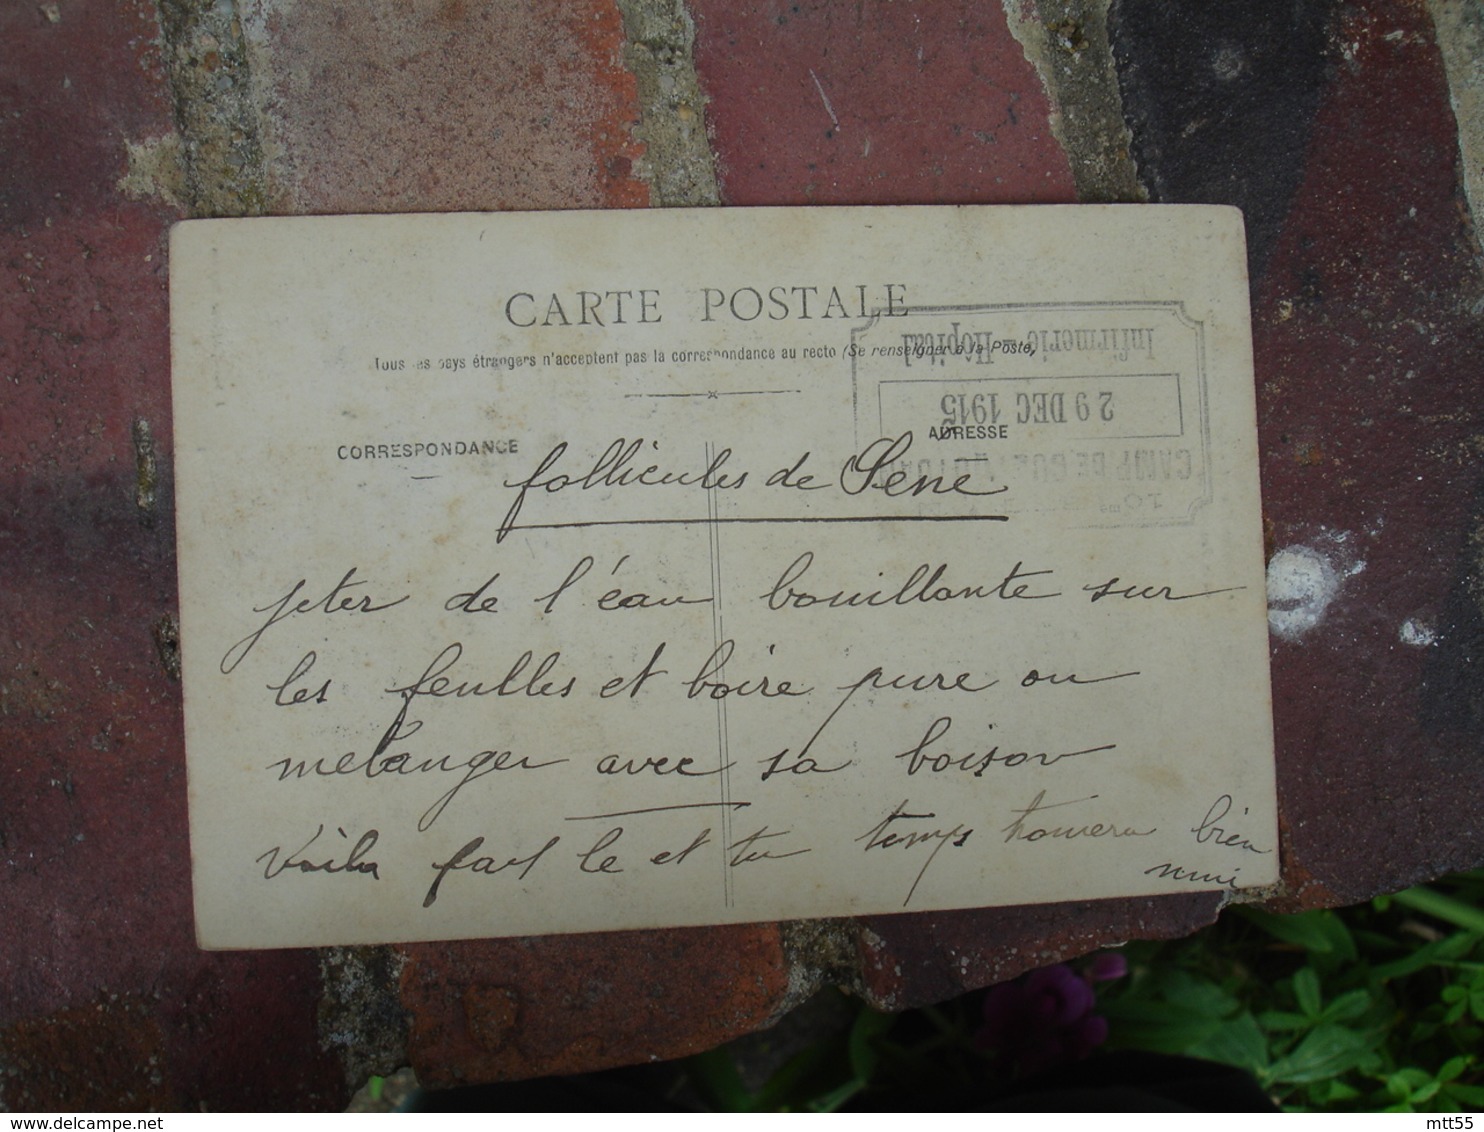 CARTE POSTALE
Tous les pays étrangers n'acceptent pas la correspondance au recto (Se renseigner à la Poste)
Infirmerie - Hôpital
29 DEC 1915
CAMP DE
CORRESPONDANCE
ADRESSE
follicules de Séné
jeter de l'éau bouillante sur
les feulles et boire pure ou
mélanger avec sa boison
Voila fait le et tu temps trouvera bien
mtt55